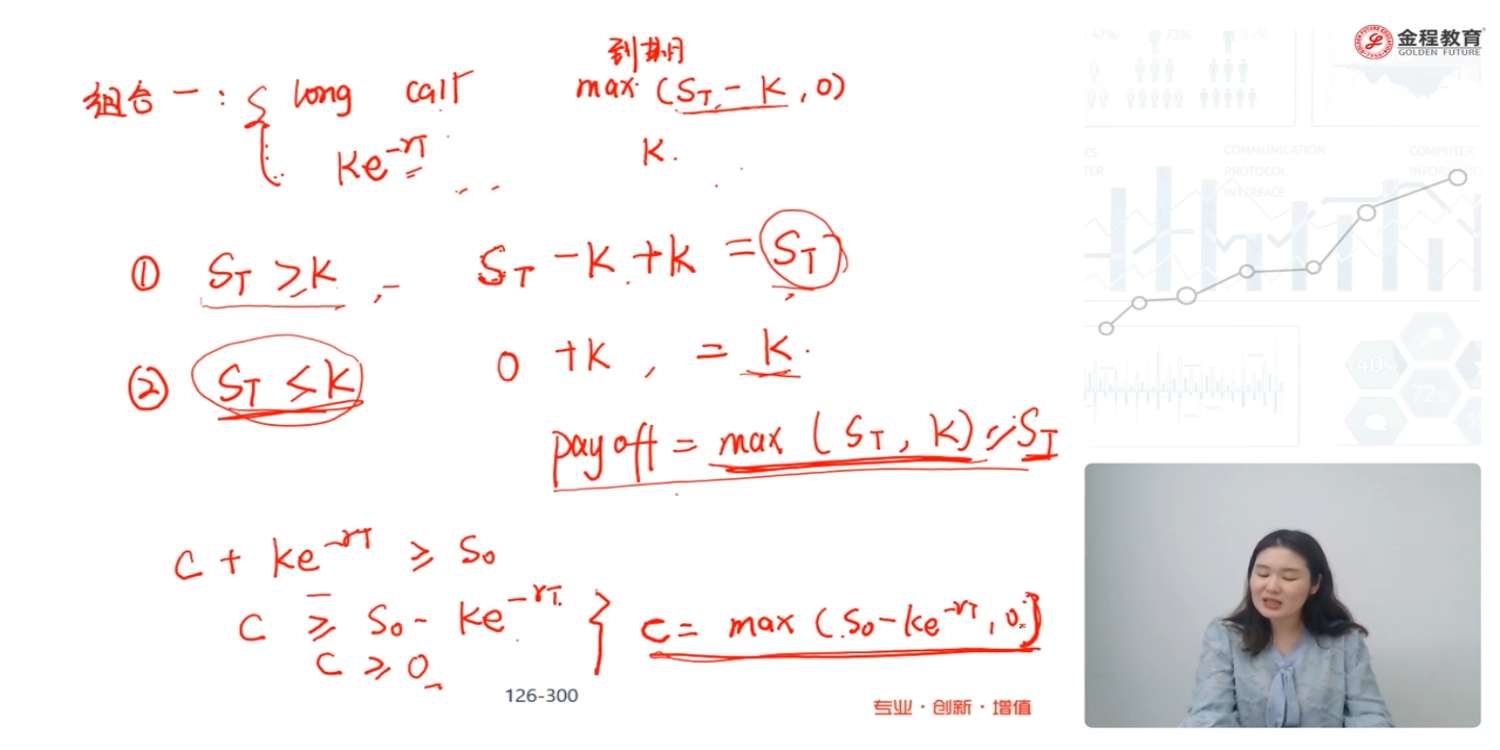 金程教育
GOLDEN FUTURE
到期月
组合一: { long call max (S_T - K, 0)
Ke^{-rT} K.
① S_T ≥ K, S_T - K + K = S_T
② S_T ≤ K 0 + K, = K.
payoff = max (S_T, K) ≥ S_T
C + Ke^{-rT} ≥ S_0
C ≥ S_0 - Ke^{-rT} } C = max (S_0 - Ke^{-rT}, 0)
C ≥ 0
126-300
专业·创新·增值
COMMUNICATION
PROTOCOL
INTERFACE
COMPUTER
40%
72%